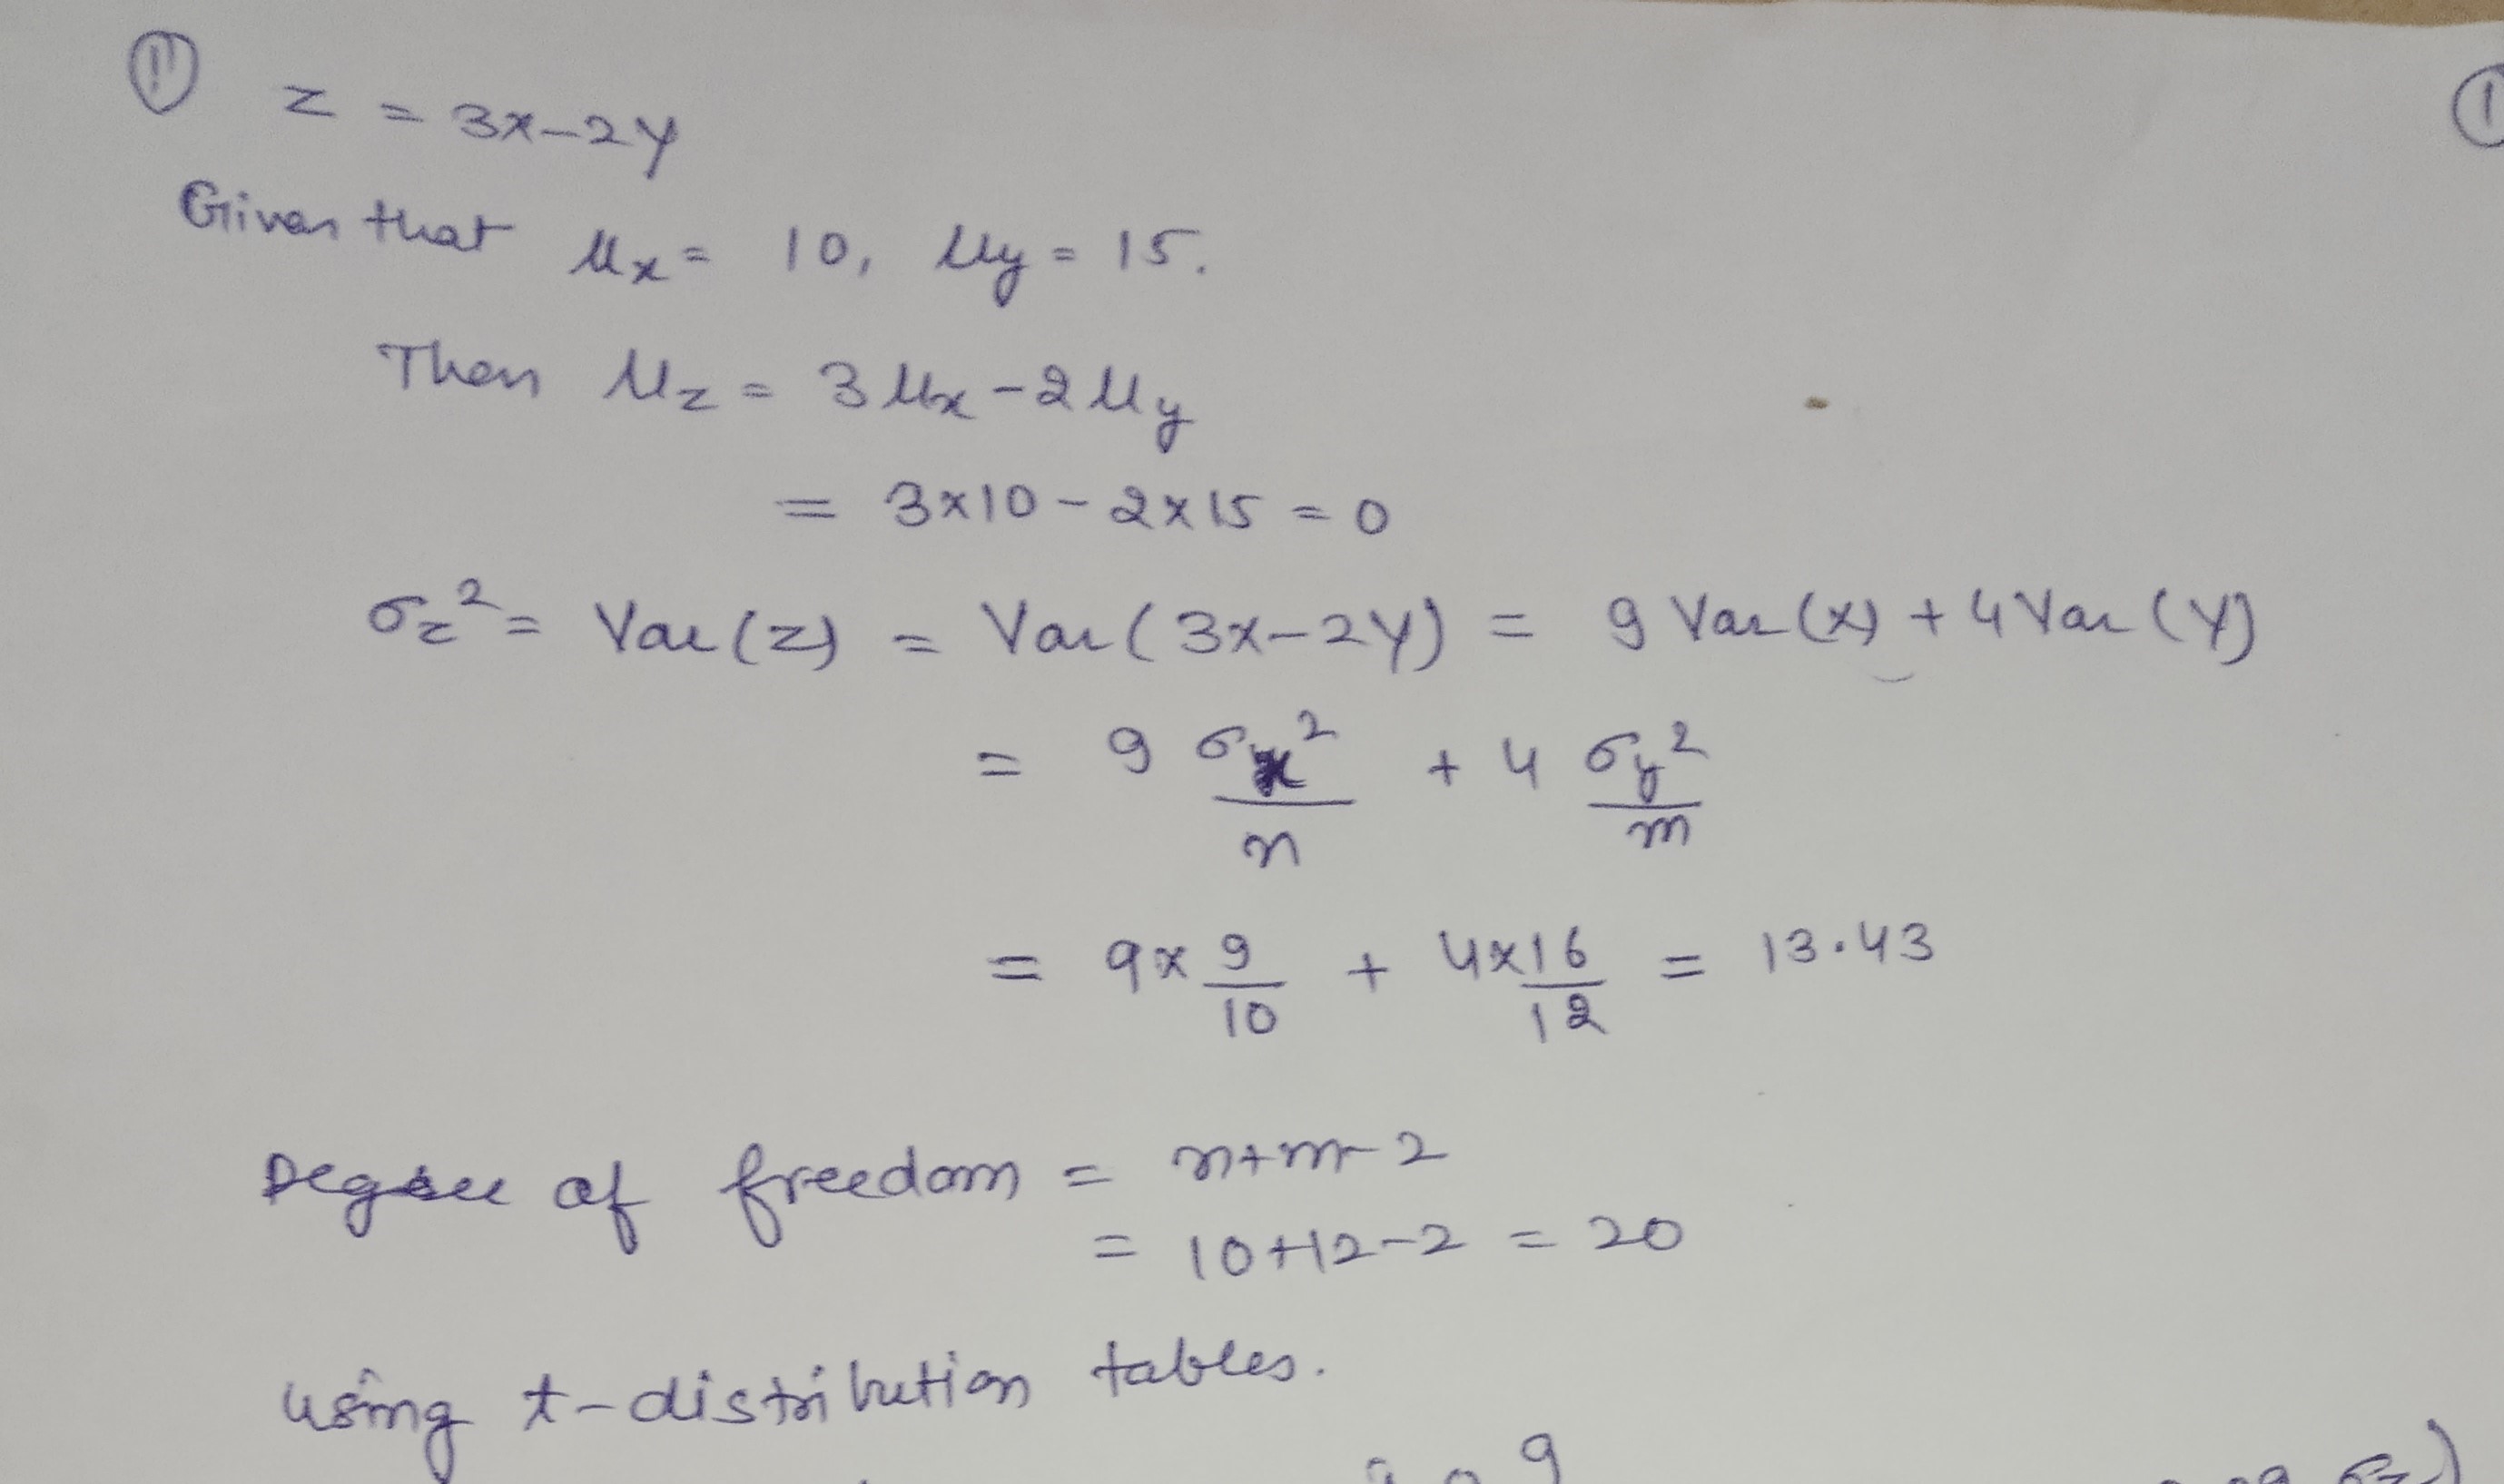 11 z = 3x-2y
Given that μx = 10, μy = 15.
Then μz = 3μx - 2μy
= 3×10 - 2×15 = 0
σz² = Var(z) = Var(3x-2y) = 9 Var(x) + 4 Var(y)
= 9 σx²/n + 4 σy²/m
= 9×9/10 + 4×16/12 = 13.43
Degree of freedom = n+m-2
= 10+12-2 = 20
using t-distribution tables.